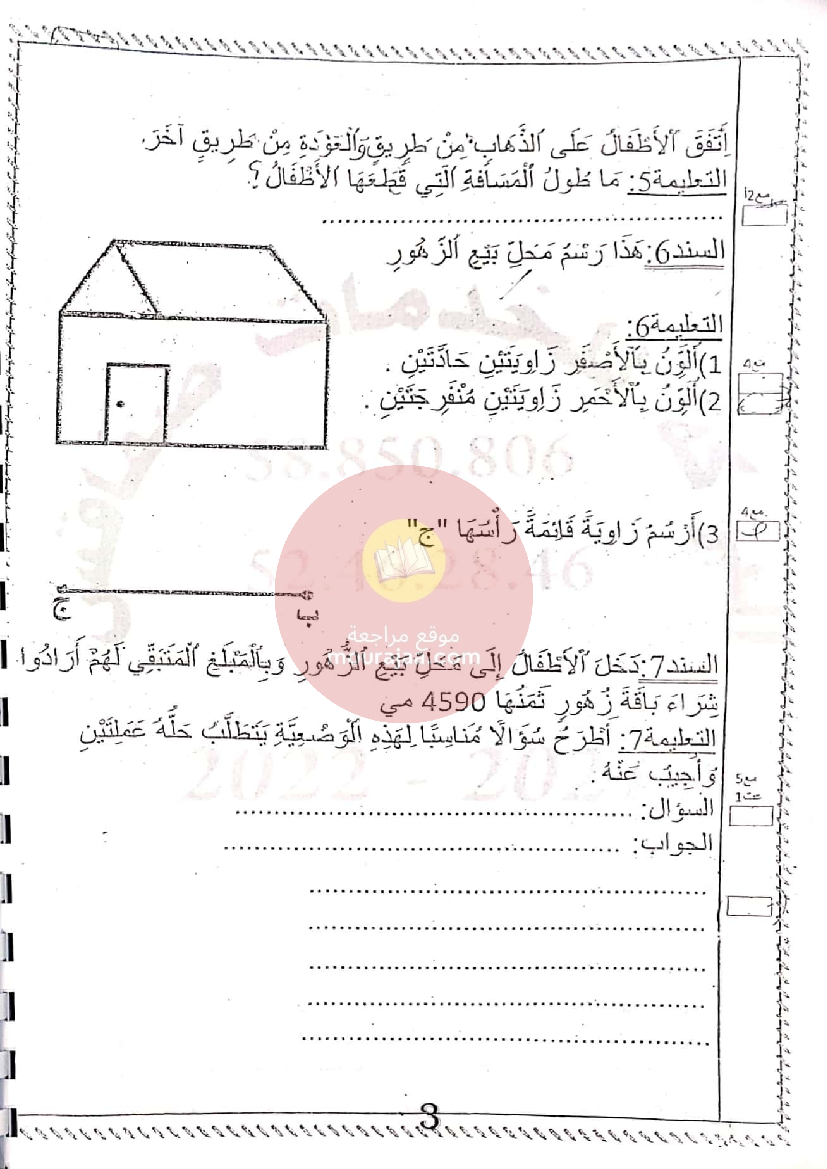 اِتَّفَقَ ٱلأَطْفَالُ عَلَى ٱلذَّهَابِ مِنْ طَرِيقٍ وَٱلْعَوْدَةِ مِنْ طَرِيقٍ آخَرَ.
التعليمة5: مَا طُولُ ٱلْمَسَافَةِ ٱلَّتِي قَطَعَهَا ٱلأَطْفَالُ؟
مع2ا
........................................................
السند6: هَذَا رَسْمُ مَحَلِّ بَيْعِ ٱلزُّهُورِ
التعليمة6:
1)أُلَوِّنُ بِٱلأَصْفَرِ زَاوِيَتَيْنِ حَادَّتَيْنِ .
مع4
2)أُلَوِّنُ بِٱلأَحْمَرِ زَاوِيَتَيْنِ مُنْفَرِجَتَيْنِ .
58.850.806
3)أَرْسُمُ زَاوِيَةً قَائِمَةً رَأْسُهَا "ج"
مع4
ج
ب
موقع مراجعة
السند7: دَخَلَ ٱلأَطْفَالُ إِلَى مَحَلِّ بَيْعِ ٱلزُّهُورِ وَبِٱلْمَبْلَغِ ٱلْمُتَبَقِّي لَهُمْ أَرَادُوا
شِرَاءَ بَاقَةَ زُهُورٍ ثَمَنُهَا 4590 مي
التعليمة7: أَطْرَحُ سُؤَالًا مُنَاسِبًا لِهَذِهِ ٱلْوَضْعِيَّةِ يَتَطَلَّبُ حَلُّهُ عَمَلِيَّتَيْنِ
وَأُجِيبُ عَنْهُ.
مع5
السؤال: ........................................................
الجواب: ........................................................
........................................................
........................................................
........................................................
........................................................
........................................................
3